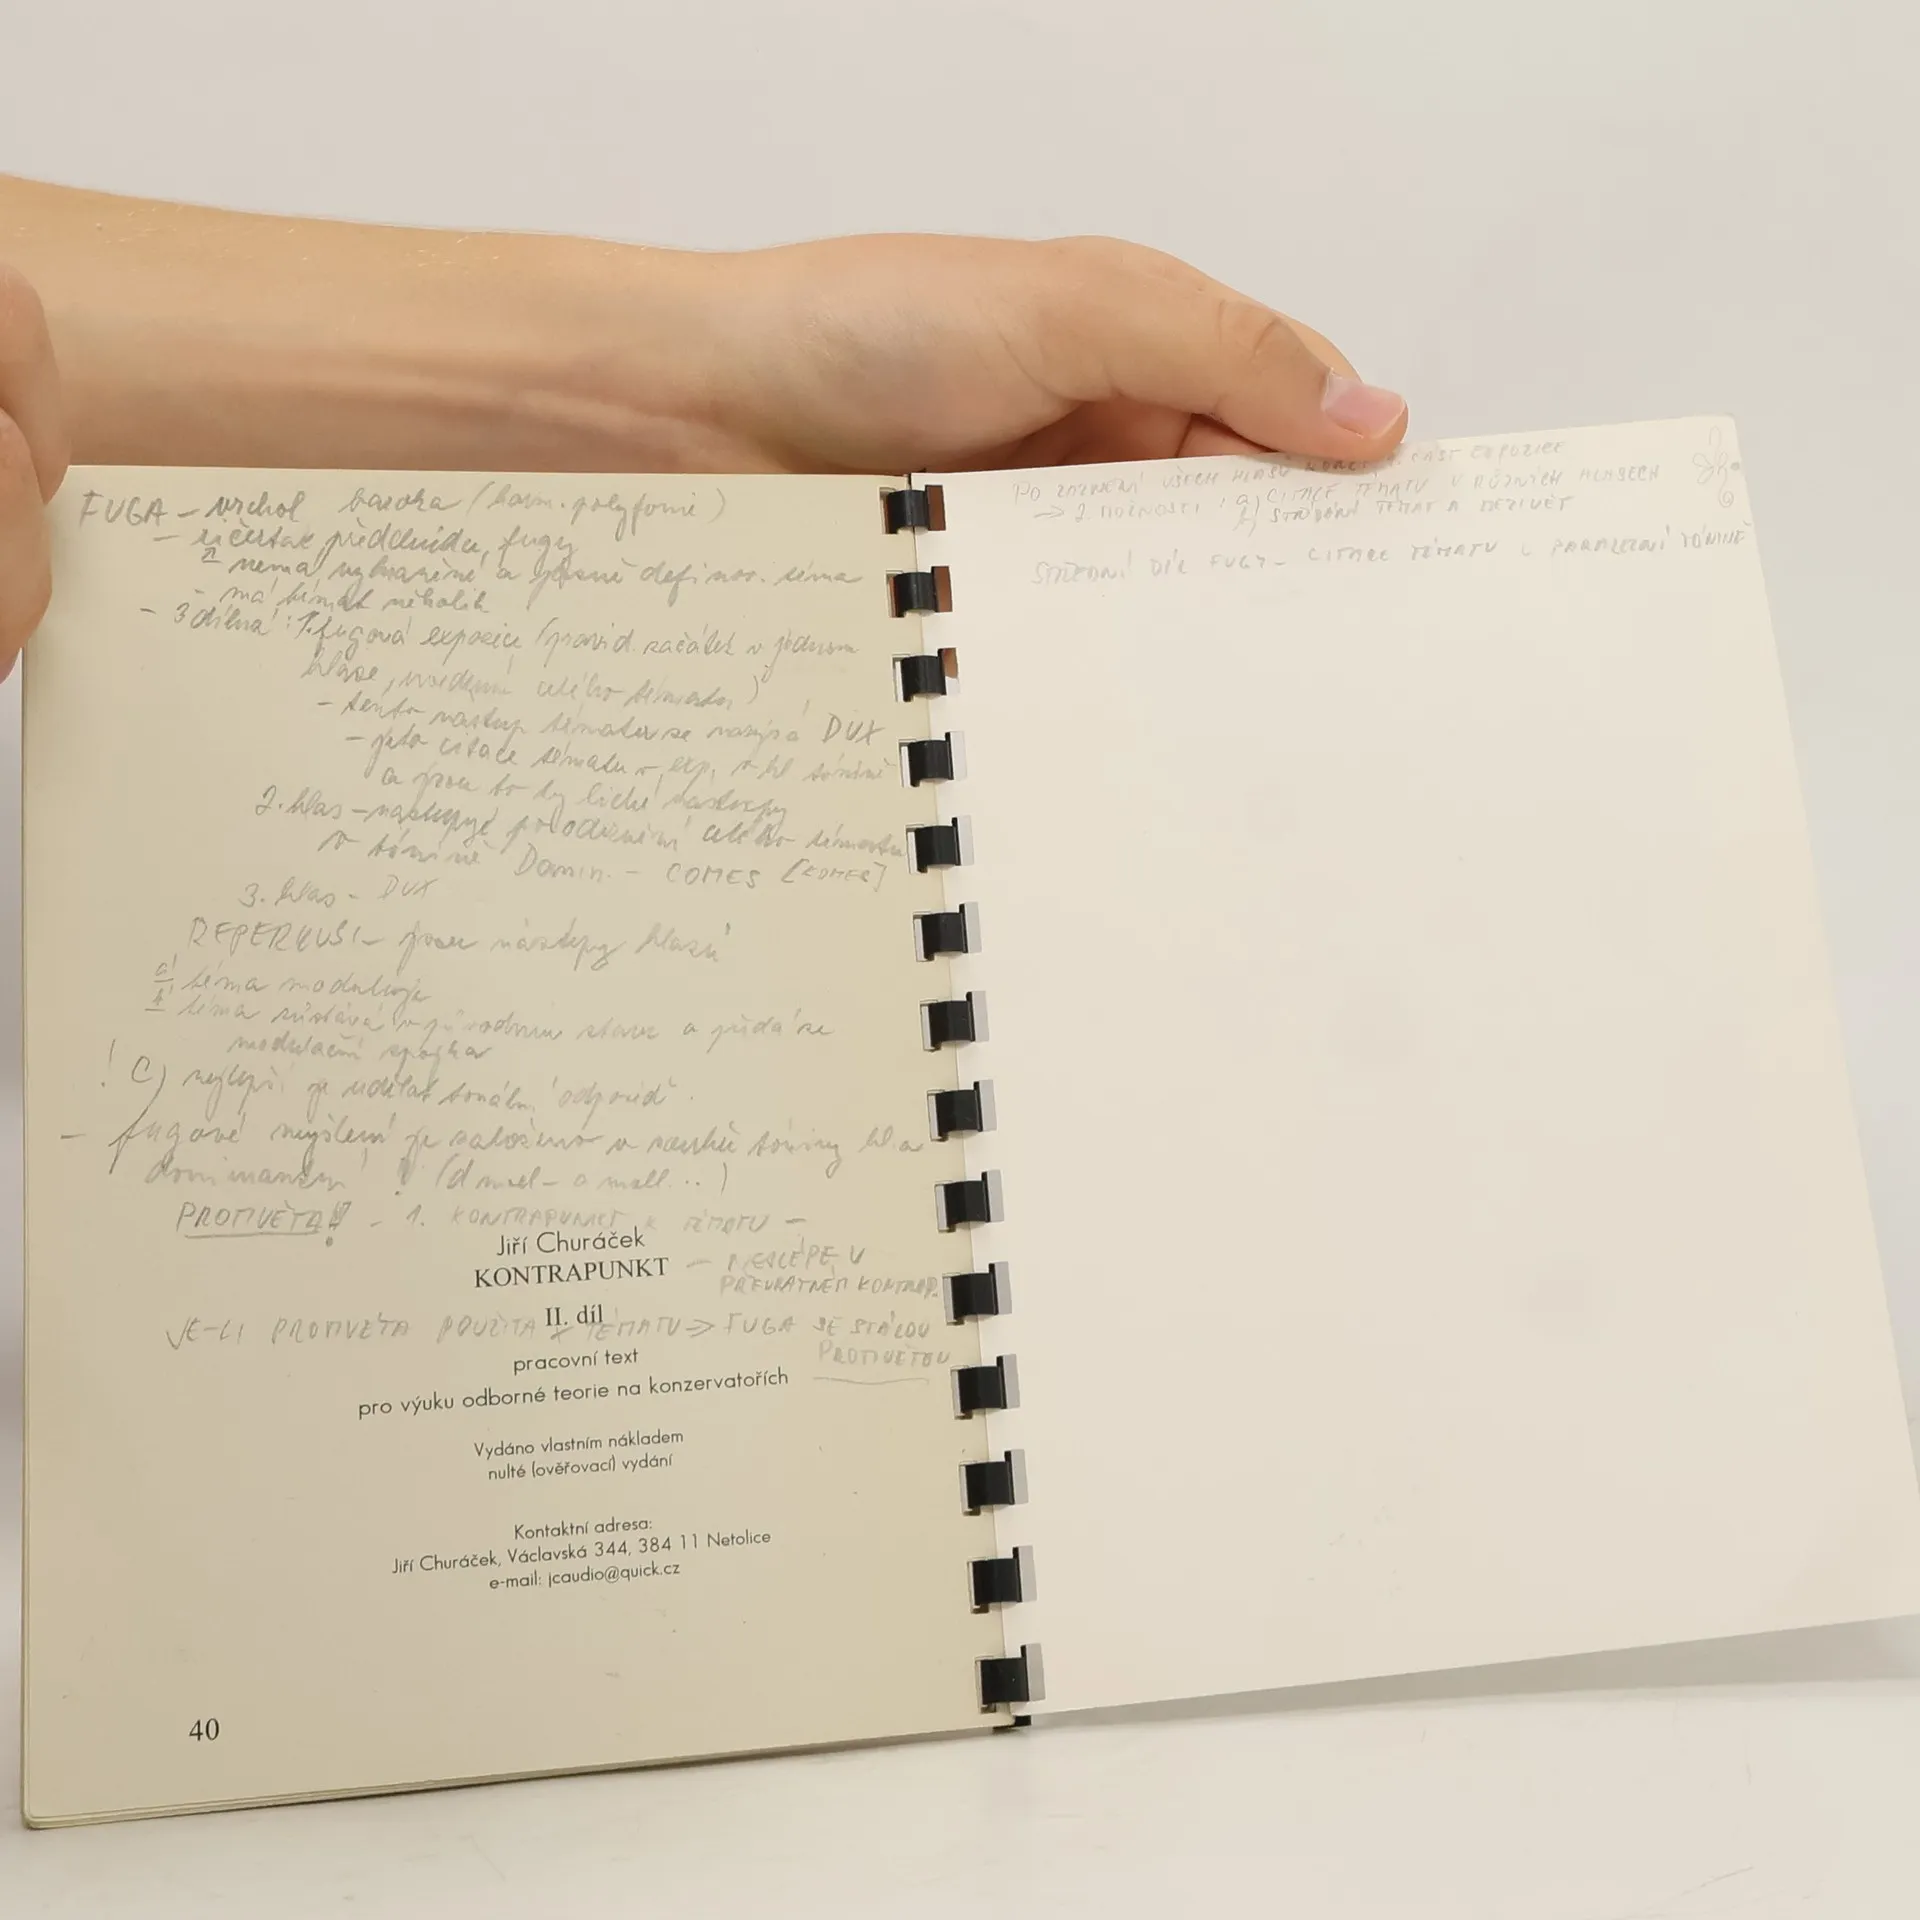 FUGA – vrchol baroka (harm. polyfonie)
– ričercar předchůdce fugy
nemá vyhraněné a jasně definov. téma
– má témat několik
– 3dílná: 1. fugová expozice (pravid. začátek v jednom
hlase, uvedení celého tématu)
– tento nástup tématu se nazývá DUX
– je to citace tématu v exp. v hl tónině
a jsou to ty liché nástupy
2. hlas – nastupuje po odeznění celého tématu
v tónině Domin. – COMES [KOMES]
3. hlas – DUX
REPERKUSI – jsou nástupy hlasů
a) téma moduluje
b) téma zůstává v původním stavu a přidá se
modulační spojka
! C) nejlepší je udělat tonální odpověď.
– fugové myšlení je založeno v rámci tóniny hl. a
dominantní ! (d moll – a moll...)
PROTIVĚTA!! – 1. KONTRAPUNKT K TÉMATU –
– NEJLÉPE V
PŘEVRATNÉM KONTRAP.
Jiří Churáček
KONTRAPUNKT
II. díl
JE-LI PROTIVĚTA POUŽITA K TÉMATU ⇒ FUGA SE STÁLOU
PROTIVĚTOU
pracovní text
pro výuku odborné teorie na konzervatořích
Vydáno vlastním nákladem
nulté (ověřovací) vydání
Kontaktní adresa:
Jiří Churáček, Václavská 344, 384 11 Netolice
e-mail: jcaudio@quick.cz
40
PO ZAZNĚNÍ VŠECH HLASŮ KONČÍ ČÁST EXPOZICE
→ 2. MOŽNOSTI: a) CITACE TÉMATU V RŮZNÝCH HLASECH
b) STŘÍDÁNÍ TÉMAT A MEZIVĚT
STŘEDNÍ DÍL FUGY – CITACE TÉMATU V PARALELNÍ TÓNINĚ